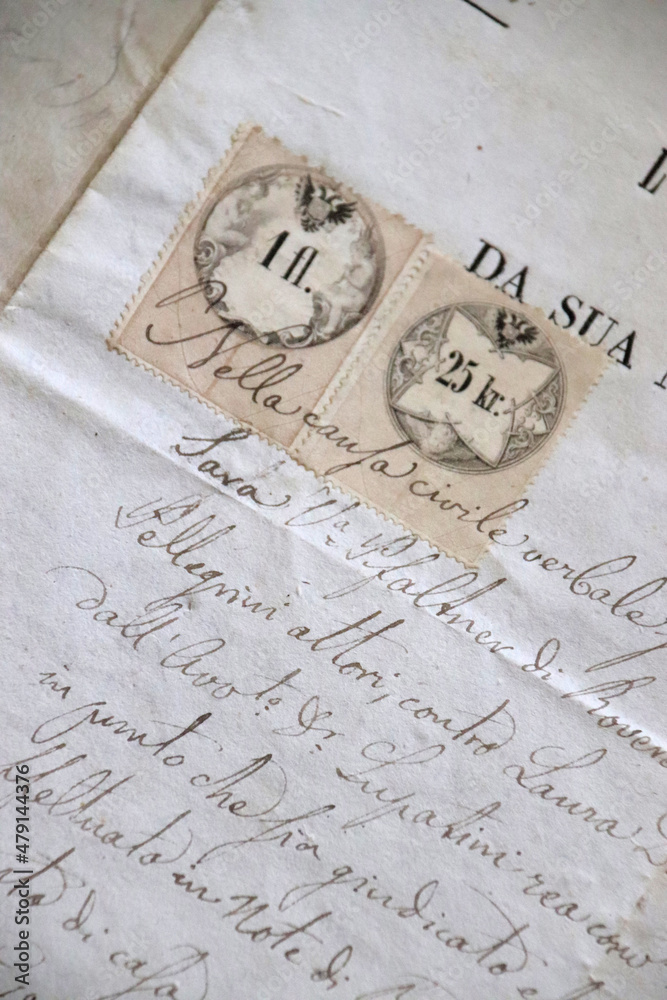 DA SUA
1 fl.
25 kr.
Nella causa civile verbale
Sara Va Pfaltner di Rovere
Pellegrini attori, contro Laura
dall'Avvto. Dr. Lupatini rea conv
in punto che sia giudicato e
in Note di
di casa
Adobe Stock | #479144376